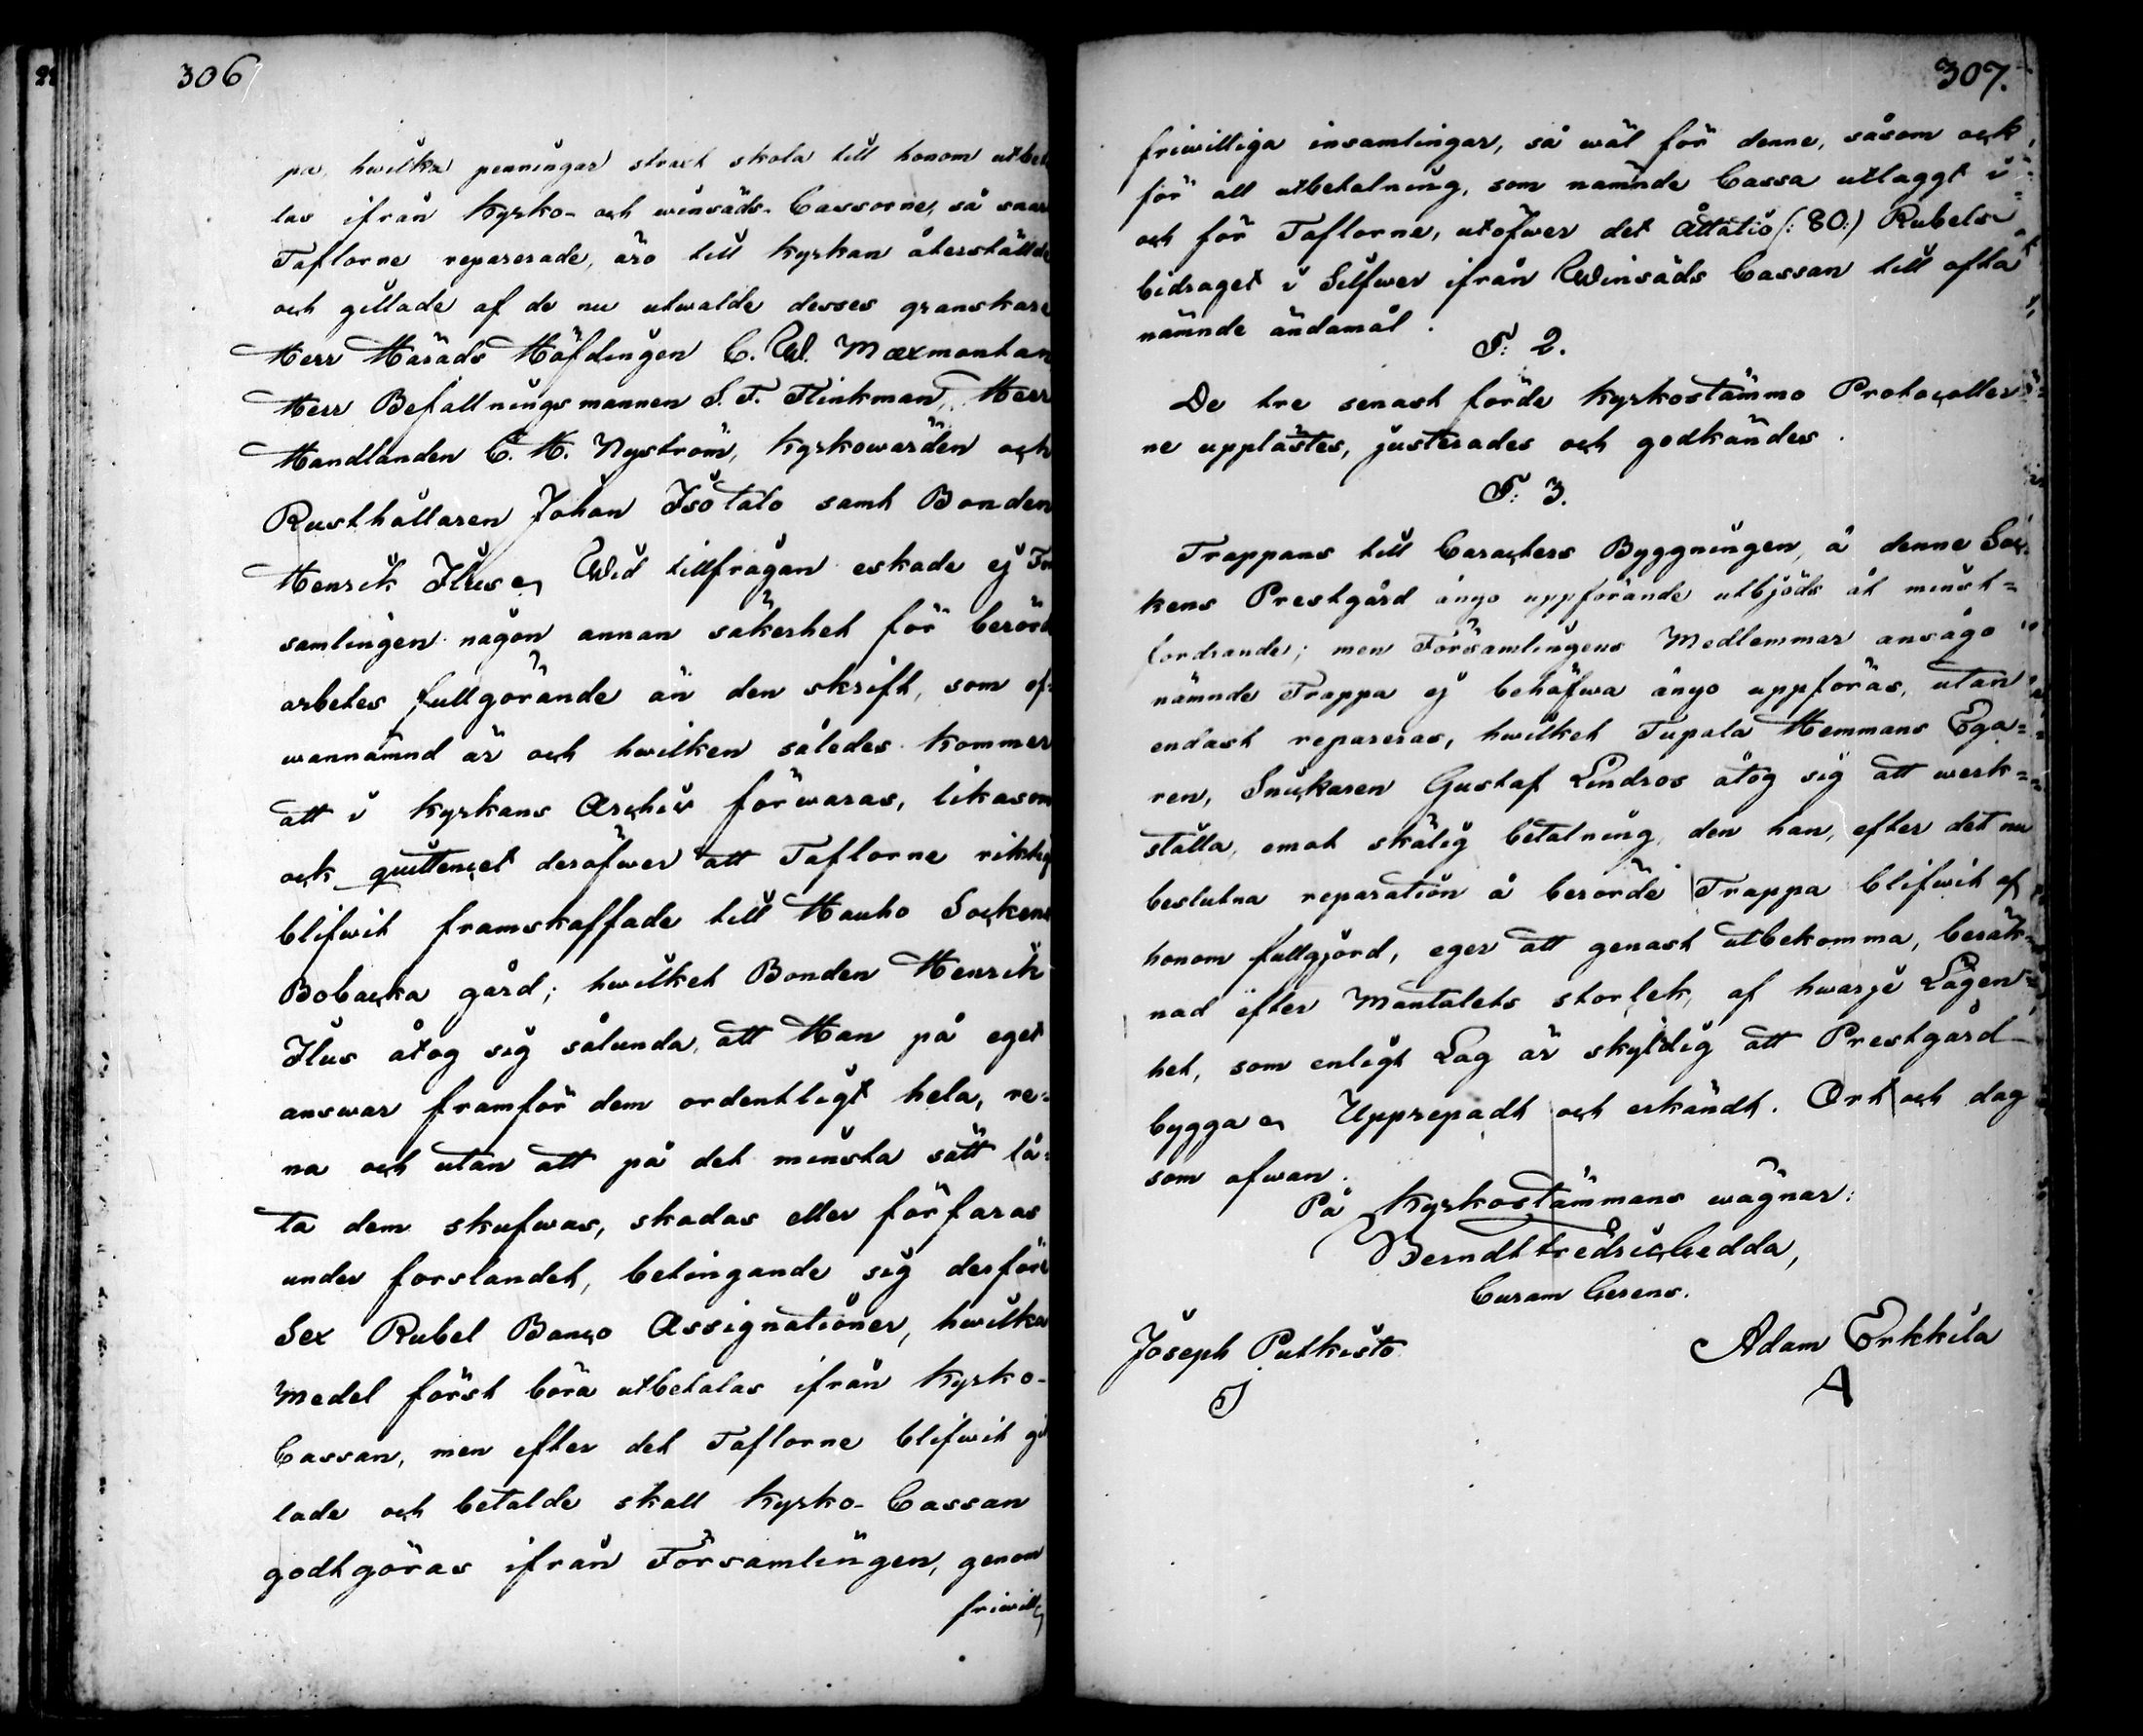 306
pa, hwilka penningar straxt skola till honom utbeta
las ifrån Kyrko- och winsäds- Cassorne, så snart
Taflorne reparerade, äro till Kyrkan återställde
och gillade af de nu utwalde desses granskare
Herr Härads Höfdingen C. W. Maxmontan
Herr Befallningsmannen S. F. Flinkman, Herr
Handlanden C. H. Nyström, Kyrkowärden och
Rusthållaren Johan Isotalo samt Bonden
Henrik Ilus. Wid tillfrågan eskade ej För
samlingen någon annan säkerhet för berörde
arbetes fullgörande än den skrift, som of-
wannämnd är och hwilken således kommer
att i Kyrkans Archiv förwaras, likasom
ock quittencet deröfwer att Taflorne riktigt
blifwit framskaffade till Hauho Sockens
Bobacka gård; hwilket Bonden Henrik
Ilus åtog sig sålunda, att Han på eget
answar framför dem ordentligt hela, re-
na och utan att på det minsta sätt lå-
ta dem skufwas, skadas eller förfaras
under forslandet, betingande sig derför
Sex Rubel Banco Assignationer, hwilka
Medel först böra utbetalas ifrån Kyrko-
Cassan, men efter det Taflorne blifwit gil
lade och betalde skall Kyrko- Cassan
godtgöras ifrån Församlingen, genom
friwill
307.
friwilliga insamlingar, så wäl för denne, såsom ock
för all utbetalning, som nämnde Cassa utlaggt i
och för Taflorne, utöfwer det Åttatio (: 80:) Rubels
bidraget i Silfwer ifrån Winsäds Cassan till ofta
nämnde ändamål.
§: 2.
De tre senast förde Kyrkostämmo Protocoller
ne upplästes, justerades och godkändes.
§: 3.
Trappans till Caracters Byggningen, å denne Soc
kens Prestgård ånyo uppförande utbjöds åt minst-
fordrande; men Församlingens Medlemmar ansågo
nämnde Trappa ej behöfwa ånyo uppföras, utan
endast repareras, hwilket Tupala Hemmans Ega-
ren, Snickaren Gustaf Lindros åtog sig att werk-
ställa, emot skälig betalning, den han, efter det nu
beslutna reparation å berörde Trappa blifwit af
honom fullgjord, eger att genast utbekomma, beräk-
nad efter Mantalets storlek, af hwarje Lägen-
het, som enligt Lag är skyldig att Prestgård
bygga. Upprepadt och erkändt. Ort och dag
som ofwan.
På Kyrkostämmans wägnar:
Berndt Fredric Gedda,
Curam Gerens.
Joseph Putkisto Adam Erkkila
J A